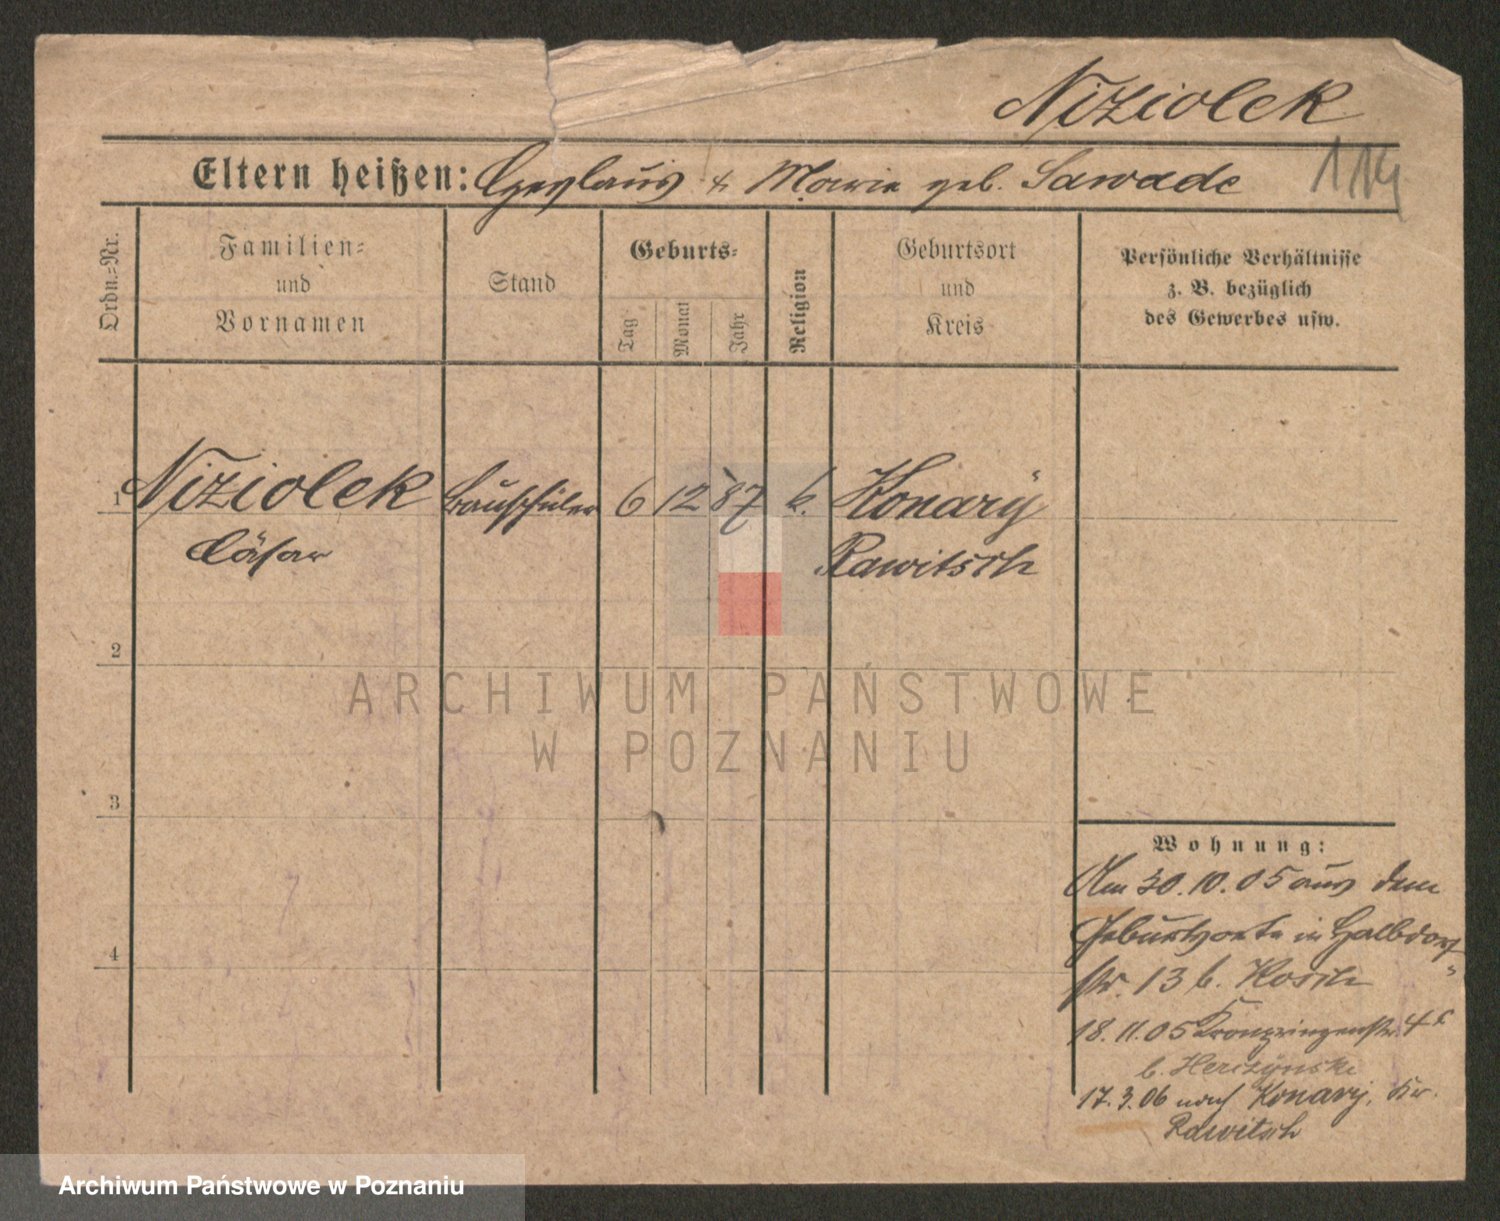 Niziolek
114
Eltern heißen: Czeslaus & Marie geb. Sawade
Ordn.=Nr.
Familien=
und
Vornamen
Stand
Geburts=
Tag
Monat
Jahr
Religion
Geburtsort
und
Kreis
Persönliche Verhältnisse
z. B. bezüglich
des Gewerbes usw.
1 Niziolek Bauschüler 6 12 87 k. Konary
Cäsar Rawitsch
2
3
4
Wohnung:
Am 30.10.05 aus dem
Geburtsorte in Halbdorf
str. 13 b.
18.11.05 Kronprinzenstr. 4
b.
17.3.06 nach Konary, Kr.
Rawitsch
ARCHIWUM PAŃSTWOWE
W POZNANIU
Archiwum Państwowe w Poznaniu